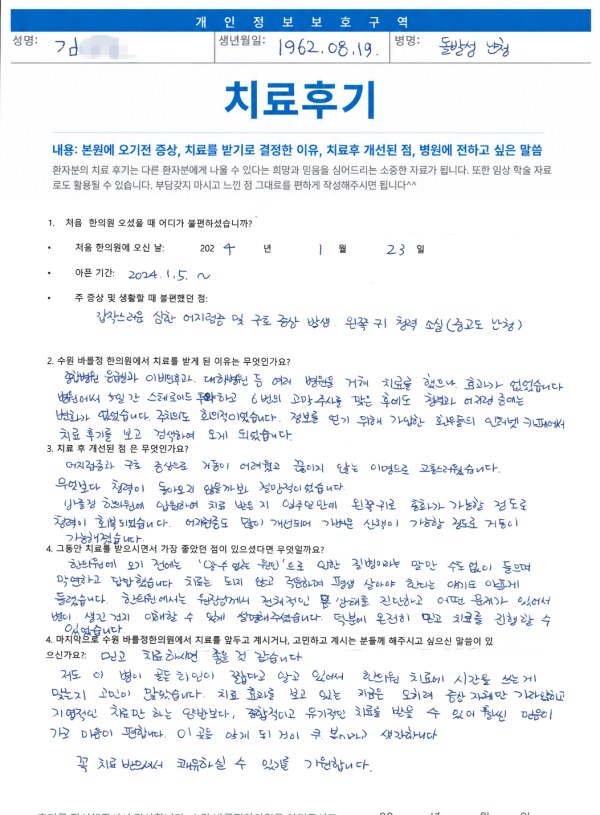 개 인 정 보 보 호 구 역
성명: 김
생년월일: 1962.08.19.
병명: 돌발성 난청
치료후기
내용: 본원에 오기전 증상, 치료를 받기로 결정한 이유, 치료후 개선된 점, 병원에 전하고 싶은 말씀
환자분의 치료 후기는 다른 환자분에게 나을 수 있다는 희망과 믿음을 심어드리는 소중한 자료가 됩니다. 또한 임상 학술 자료
로도 활용될 수 있습니다. 부담갖지 마시고 느낀 점 그대로를 편하게 작성해주시면 됩니다^^
1. 처음 한의원 오셨을 때 어디가 불편하셨습니까?
• 처음 한의원에 오신 날: 2024 년 1 월 23 일
• 아픈 기간: 2024.1.5. ~
• 주 증상 및 생활할 때 불편했던 점:
갑작스러운 심한 어지럼증 및 구토 증상 발생. 왼쪽 귀 청력 소실 (중고도 난청)
2. 수원 바를정 한의원에서 치료를 받게 된 이유는 무엇인가요?
종합병원 응급실과 이비인후과, 대학병원 등 여러 병원을 거쳐 치료를 했으나 효과가 없었습니다
병원에서 5일간 스테로이드 투여하고 6번의 고막주사를 맞은 후에도 청력과 어지럼증에는
변화가 없었습니다. 주치의도 회의적이었습니다. 정보를 얻기 위해 가입한 환우들의 인터넷 카페에서
치료 후기를 보고 검색하여 오게 되었습니다.
3. 치료 후 개선된 점 은 무엇인가요?
어지럼증과 구토 증상으로 거동이 어려웠고 끊이지 않는 이명으로 고통스러웠습니다.
무엇보다 청력이 돌아오지 않을까봐 절망적이었습니다.
바를정 한의원에 입원하여 치료 받은지 일주일만에 왼쪽귀로 통화가 가능할 정도로
청력이 회복되었습니다. 어지럼증도 많이 개선되어 가벼운 산책이 가능할 정도로 거동이
가능해졌습니다.
4. 그동안 치료를 받으시면서 가장 좋았던 점이 있으셨다면 무엇일까요?
한의원에 오기 전에는 '알수 없는 원인'으로 인한 질병이라는 말만 수도없이 들으며
막연하고 답답했습니다. 치료는 되지 않고 적응하며 평생 살아야 한다는 얘기도 아프게
들렸습니다. 한의원에서는 원장님께서 전체적인 몸 상태를 진단하고 어떤 문제가 있어서
병이 생긴 건지 이해할 수 있게 설명해주셨습니다. 덕분에 온전히 믿고 치료를 진행할 수
있었습니다
4. 마지막으로 수원 바를정한의원에서 치료를 앞두고 계시거나, 고민하고 계시는 분들께 해주시고 싶으신 말씀이 있
으신가요?: 믿고 치료하시면 좋을 것 같습니다
저도 이 병이 골든타임이 짧다고 알고 있어서 한의원 치료에 시간을 쓰는게
맞는지 고민이 많았습니다. 치료 효과를 보고 있는 지금은 오히려 증상 자체만 가라앉히고
지엽적인 치료만 하는 양방보다, 종합적이고 유기적인 치료를 받을 수 있어 훨씬 믿음이
가고 마음이 편합니다. 이 곳을 알게 된 것이 큰 복이라고 생각합니다
꼭 치료 받으셔서 쾌유하실 수 있기를 기원합니다.